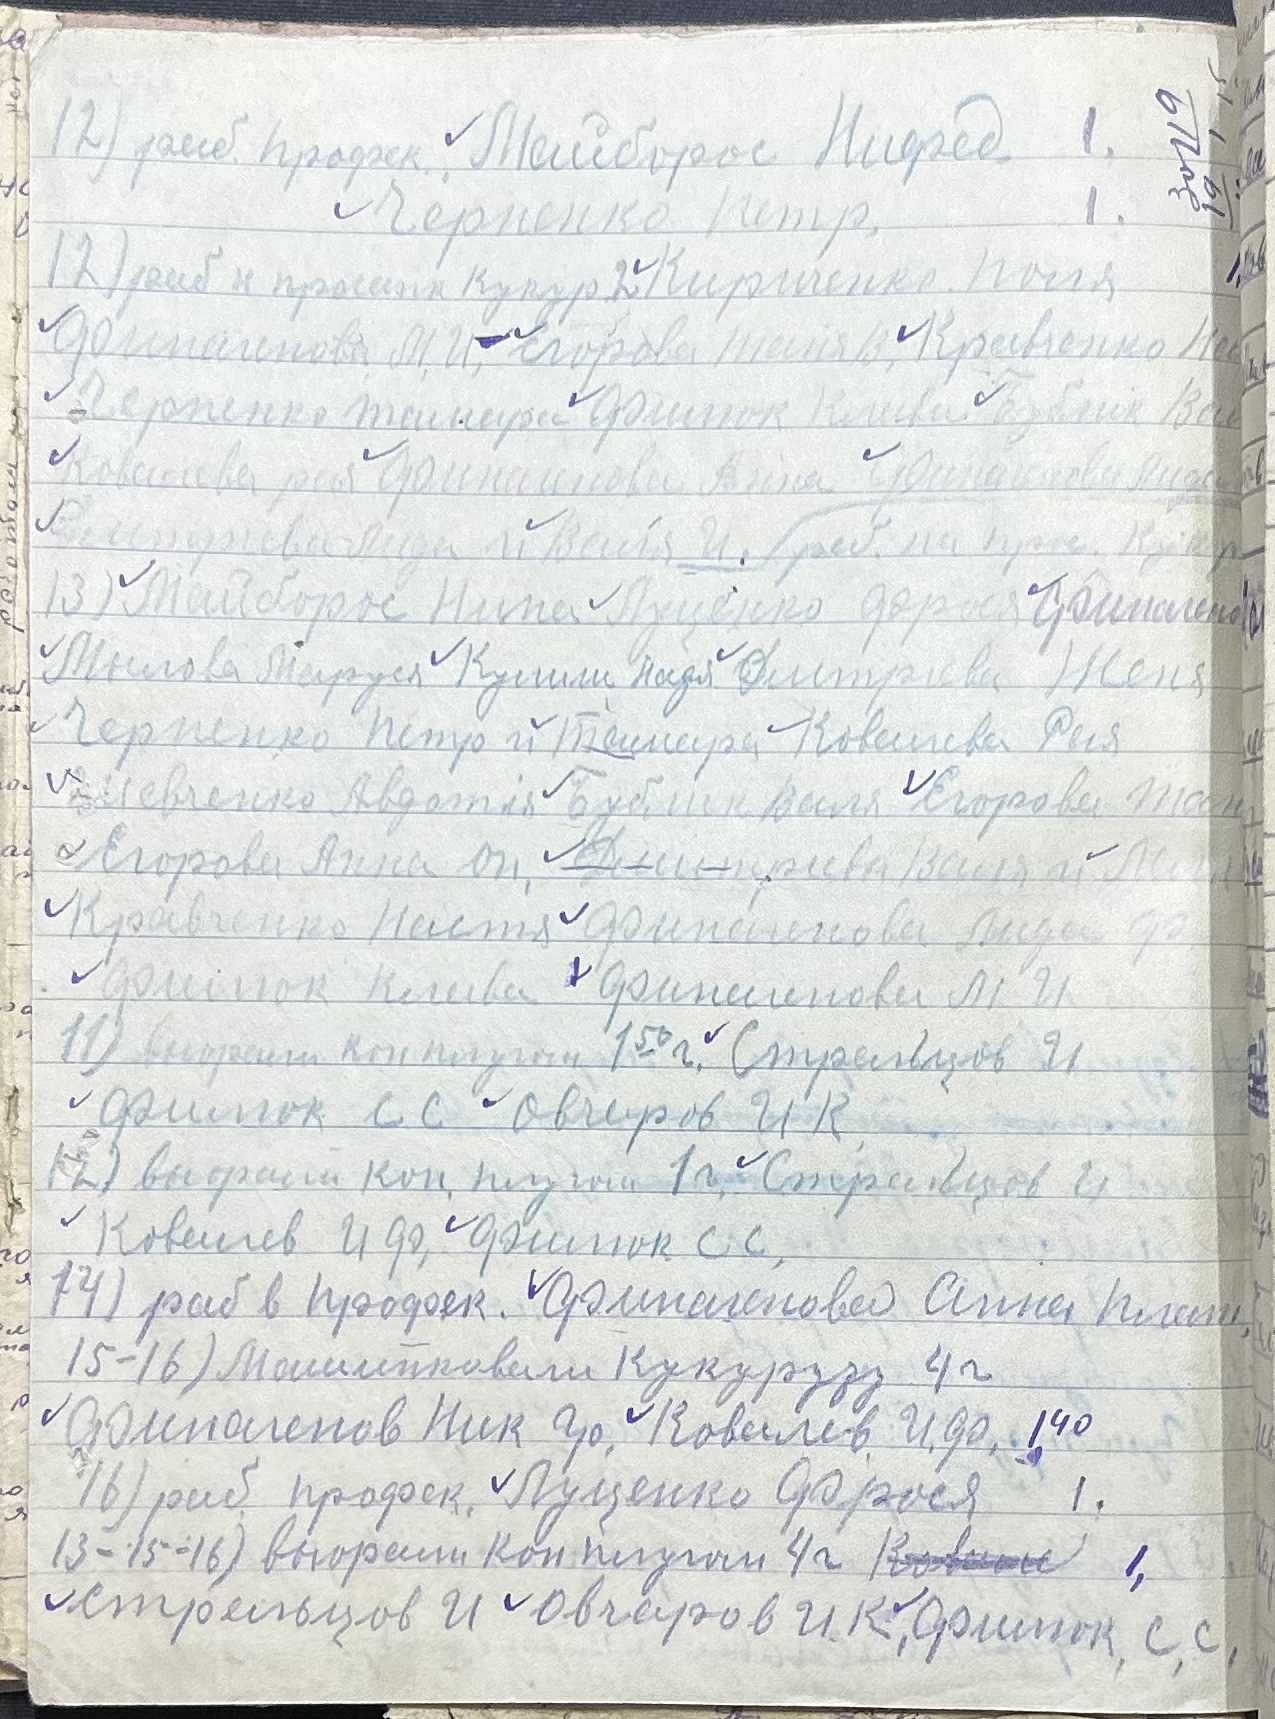 12) раб. профск. Майборос Нифед 1.
Черненко Петр. 1.
12) раб н просапк кукур 2 Кириченко Поля
М, И, Егорова Таня В, Кравченко Нас
Черненко тамара Филюк Клава Бублик Вал
Ковалева рая Финагенова Анна Финагенова Лида
Дмитриева Лида и Валя И. раб. на прос. Кукур
13) Майборос Нина Луценко фрося Финагено
Мылова Маруся Надя Дмитриева Женя
Черненко Петр и Тамара Ковалева Рая
Шевченко Авдотия Бублик Валя Егорова Тан
Егорова Анна Дмитриева Валя и
Кравченко Настя Финагенова Лида Ф,
Филюк Клава Финагенова М И
11) выорали кон плугом 1 50 г. Стрельцов И
Филюк С С Овчаров И К
12) выорали кон, плугом 1 г, Стрельцов И
Ковалев И Ф, Филюк С С,
14) раб в профск. Финагенова Анна Плат,
15-16) Кукурузу 4 г
Финагенов Ник Гр, Ковалев И, Ф, 1 40
16) раб профск, Луценко Фрося 1.
13-15-16) выорали кон плугом 4 г 1,
Стрельцов И Овчаров И. К, Филюк, С, С,